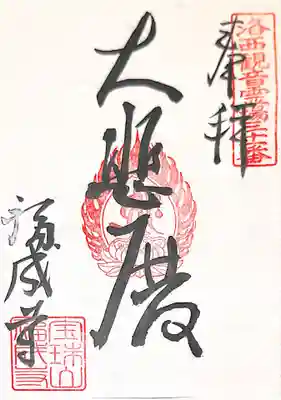 洛西観音霊場三十番
奉拝
大悲殿
福成寺
宝珠山福成寺